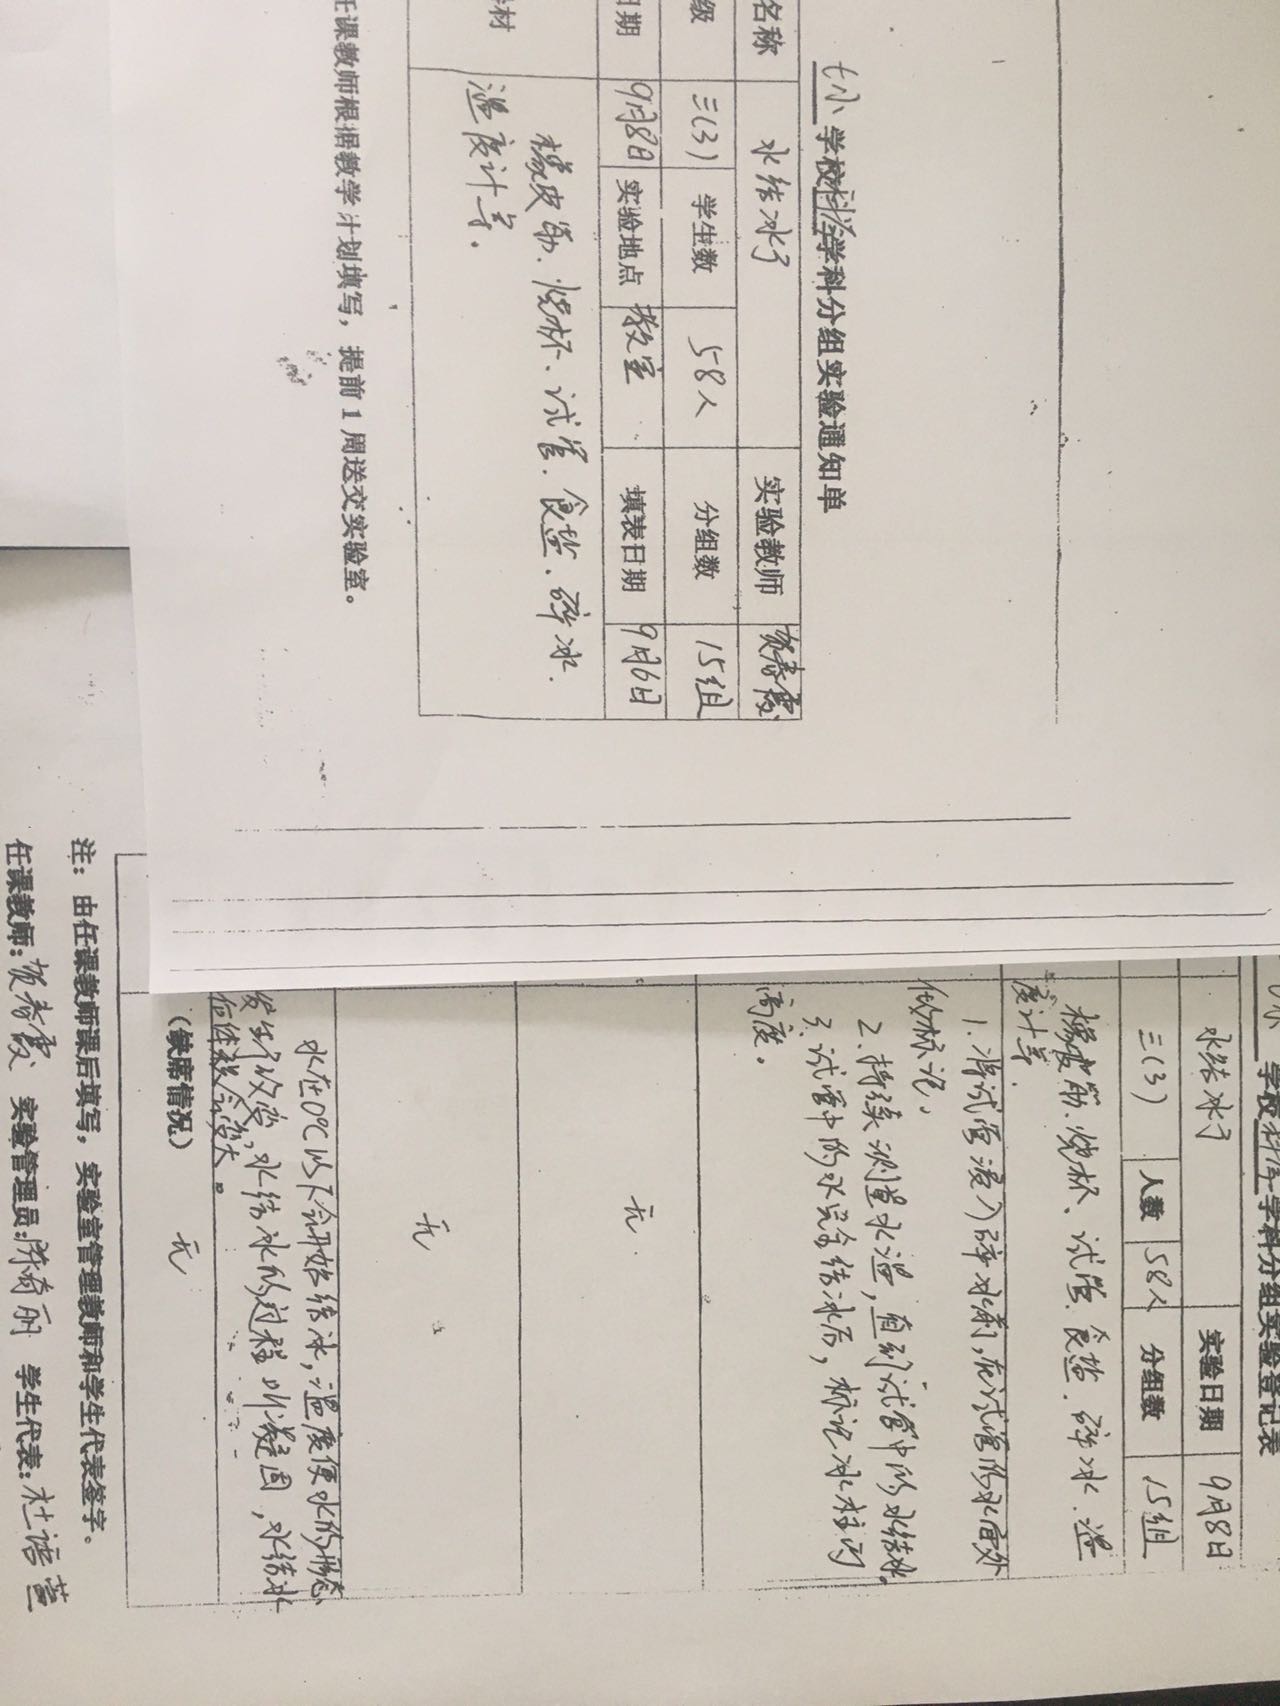 七小学校科学学科分组实验通知单
名称 水结冰了 实验教师
级 三(3) 学生数 58人 分组数 15组
日期 9月8日 实验地点 教室 填表日期 9月6日
材 橡皮筋、烧杯、试管、食盐、碎冰、
温度计等。
任课教师根据教学计划填写，提前1周送交实验室。
学校科学学科分组实验登记表
水结冰了 实验日期 9月8日
三(3) 人数 58人 分组数 15组
橡皮筋、烧杯、试管、食盐、碎冰、温
度计等.
1.将试管浸入碎冰前,在试管的水面处
做标记。
2.持续测量水温,直到试管中的水结冰。
3.试管中的水完全结冰后,标记冰柱的
高度。
无
无
水在0℃以下会开始结冰,温度使水的形态
发生了改变,水结冰的过程叫凝固,水结冰
后体积会变大。
(缺席情况) 无
注：由任课教师课后填写，实验室管理教师和学生代表签字。
任课教师: 春霞 实验管理员: 丽 学生代表: 杜语